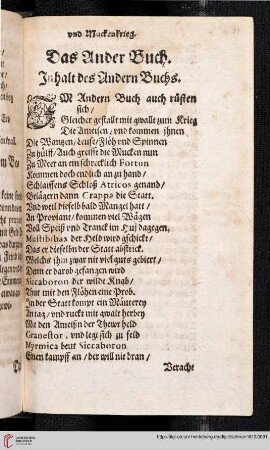 vnd Muckenkrieg.
Das Ander Buch.
Inhalt des Andern Buchs.
IM Andern Buch auch rüsten
sich/
Gleicher gestallt mit gwallt zum Krieg
Die Ameisen/ vnd kommen jhnen
Die Wantzen/ Leuse/ Flöh vnd Spinnen
Zu hülff/ Auch greifft die Mucken nun
Zu Meer an ein schrecklich Fortun
Kommen doch endlich an zu hand/
Schlaiffens Schloß Atricos genand/
Belägern dann Crappa die Statt.
Vnd weil dieselb bald Mangel hatt/
An Proviant/ kommen viel Wägen
Voll Speiß vnd Tranck im Huj dagegen.
Mastibibax der Held wird gschickt/
Das er dieselbn der Statt abstrick.
Welchs jhm zwar nit viel guts gebiert/
Dann er darob gefangen wird
Siccaboron der wilde Knab/
Thut mit den Flöhen eine Prob.
In der Statt kompt ein Mäuterey
An tag/ vnd ruckt mit gwalt herbey
Mit den Ameißn der Thewr held
Granestor/ vnd legt sich zu feld
Myrmica beut Siccaboron
Einen kampff an/ der will nit dran/
Veracht
http://digi.ub.uni-heidelberg.de/diglit/